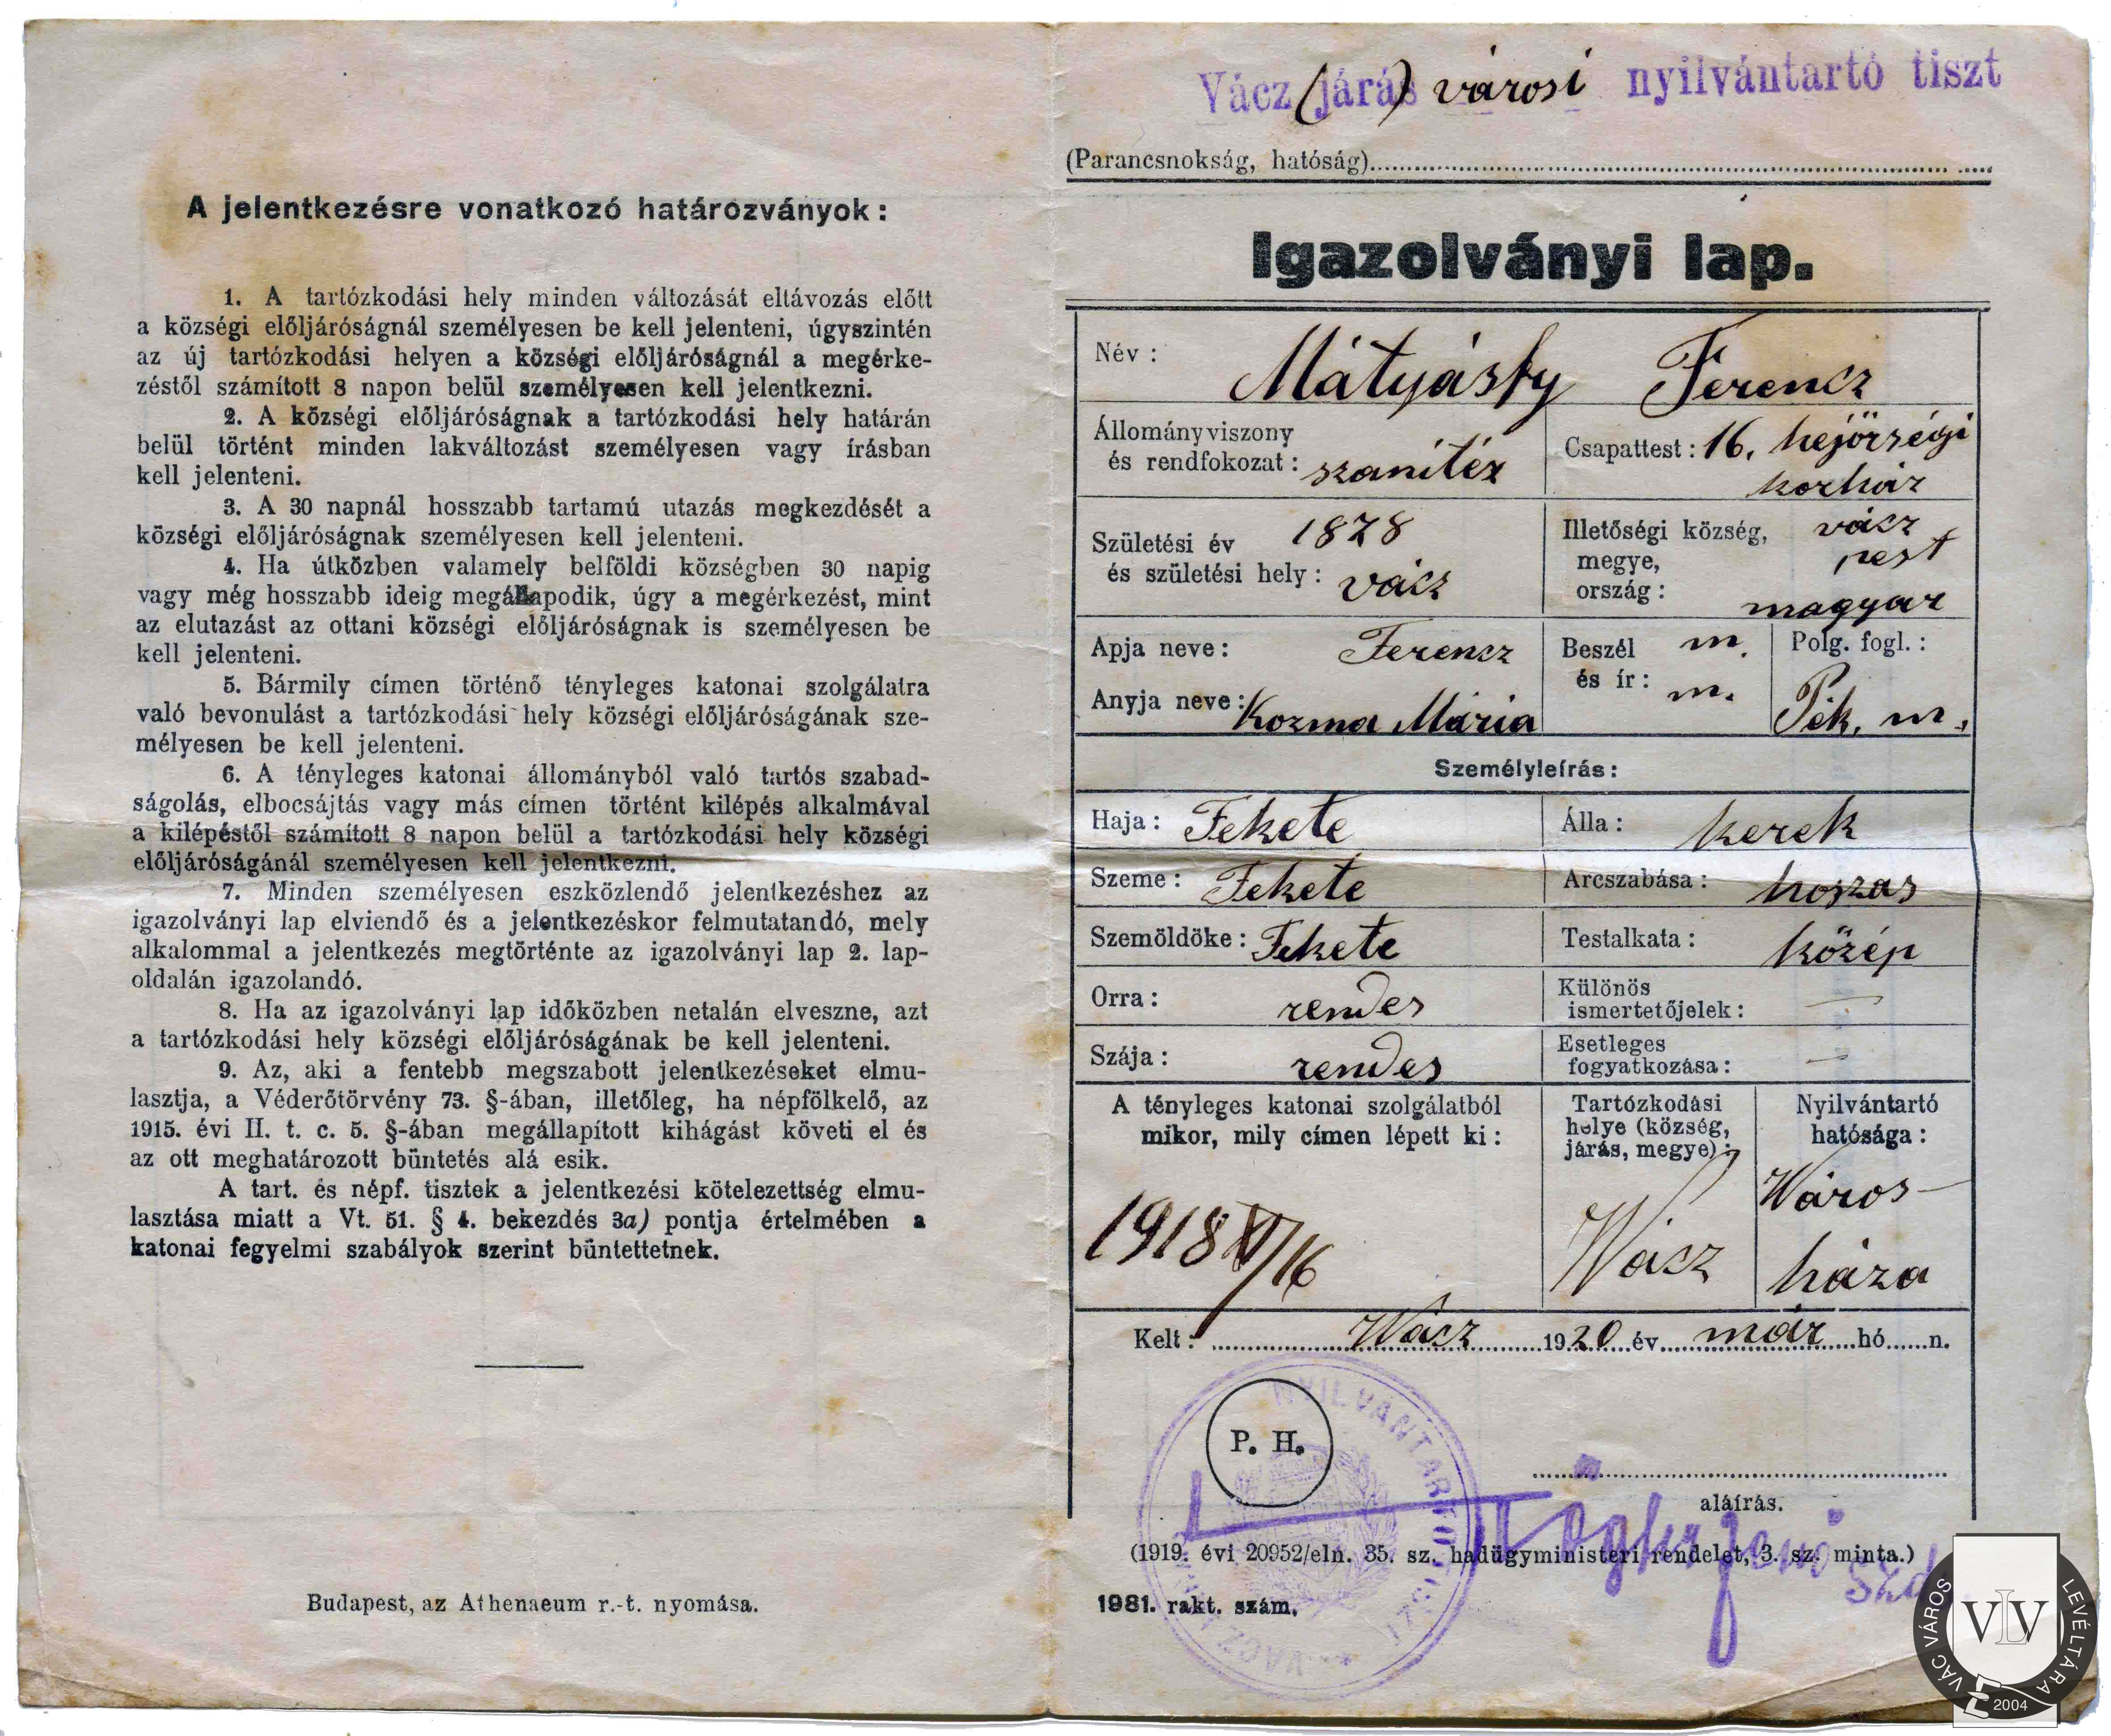 A jelentkezésre vonatkozó határozványok:
1. A tartózkodási hely minden változását eltávozás előtt
a községi előljáróságnál személyesen be kell jelenteni, úgyszintén
az új tartózkodási helyen a községi előljáróságnál a megérke-
zéstől számított 8 napon belül személyesen kell jelentkezni.
2. A községi előljáróságnak a tartózkodási hely határán
belül történt minden lakváltozást személyesen vagy írásban
kell jelenteni.
3. A 30 napnál hosszabb tartamú utazás megkezdését a
községi előljáróságnak személyesen kell jelenteni.
4. Ha útközben valamely belföldi községben 30 napig
vagy még hosszabb ideig megállapodik, úgy a megérkezést, mint
az elutazást az ottani községi előljáróságnak is személyesen be
kell jelenteni.
5. Bármily címen történő tényleges katonai szolgálatra
való bevonulást a tartózkodási hely községi előljáróságának sze-
mélyesen be kell jelenteni.
6. A tényleges katonai állományból való tartós szabad-
ságolás, elbocsájtás vagy más címen történt kilépés alkalmával
a kilépéstől számított 8 napon belül a tartózkodási hely községi
előljáróságánál személyesen kell jelentkezni.
7. Minden személyesen eszközlendő jelentkezéshez az
igazolványi lap elviendő és a jelentkezéskor felmutatandó, mely
alkalommal a jelentkezés megtörténte az igazolványi lap 2. lap-
oldalán igazolandó.
8. Ha az igazolványi lap időközben netalán elveszne, azt
a tartózkodási hely községi előljáróságának be kell jelenteni.
9. Az, aki a fentebb megszabott jelentkezéseket elmu-
lasztja, a Véderőtörvény 73. §-ában, illetőleg, ha népfölkelő, az
1915. évi II. t. c. 5. §-ában megállapított kihágást követi el és
az ott meghatározott büntetés alá esik.
A tart. és népf. tisztek a jelentkezési kötelezettség elmu-
lasztása miatt a Vt. 51. § 4. bekezdés 3a) pontja értelmében a
katonai fegyelmi szabályok szerint büntettetnek.
Budapest, az Athenaeum r.-t. nyomása.
Vácz (járás) városi nyilvántartó tiszt
(Parancsnokság, hatóság)
Igazolványi lap.
Név: Mátyásfy Ferencz
Állományviszony
és rendfokozat: szanitéz
Csapattest: 16. hejőrségi
korház
Születési év 1878
és születési hely: vácz
Illetőségi község, vácz
megye, pest
ország: magyar
Apja neve: Ferencz
Anyja neve: Kozma Mária
Beszél m.
és ír: m.
Polg. fogl.:
Pék. m.
Személyleírás:
Haja: Fekete
Álla: kerek
Szeme: Fekete
Arcszabása: hoszas
Szemöldöke: Fekete
Testalkata: közép
Orra: rendes
Különös
ismertetőjelek: —
Szája: rendes
Esetleges
fogyatkozása: —
A tényleges katonai szolgálatból
mikor, mily címen lépett ki:
1918 XI/16
Tartózkodási
helye (község,
járás, megye):
Vácz
Nyilvántartó
hatósága:
Város-
háza
Kelt: Vácz 1920 év már hó n.
P. H.
NYILVÁNTARTÓ TISZT
VÁCZ
aláírás.
(1919. évi 20952/eln. 35. sz. hadügyministeri rendelet, 3. sz. minta.)
1981. rakt. szám.
VÁC VÁROS LEVÉLTÁRA
VLV
2004